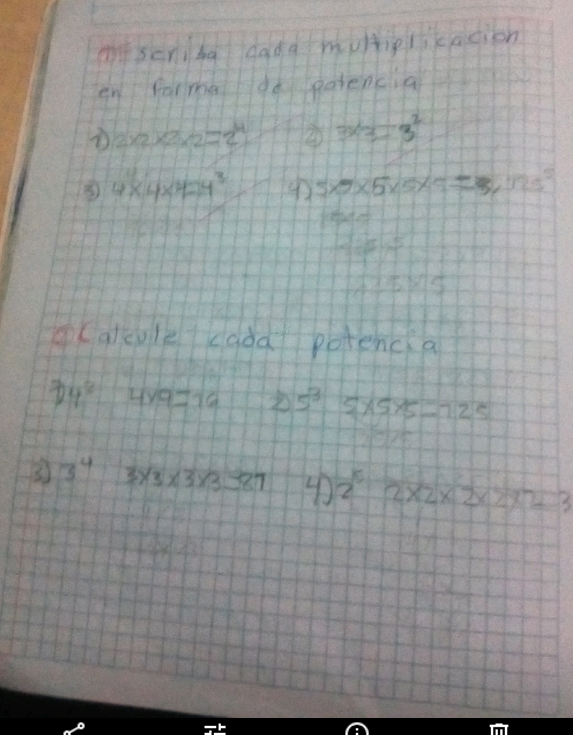 Escriba cada multiplicacion
en forma de potencia
1) 2x2x2x2=2⁴ 2) 3x3=3²
3) 4x4x4=4³ 4) 5x5x5x5x5=
Calcule cada potencia
1) 4² 4x9=16 2) 5³ 5x5x5=125
3) 3⁴ 3x3x3x3=81 4) 2⁵ 2x2x2x2x2=3